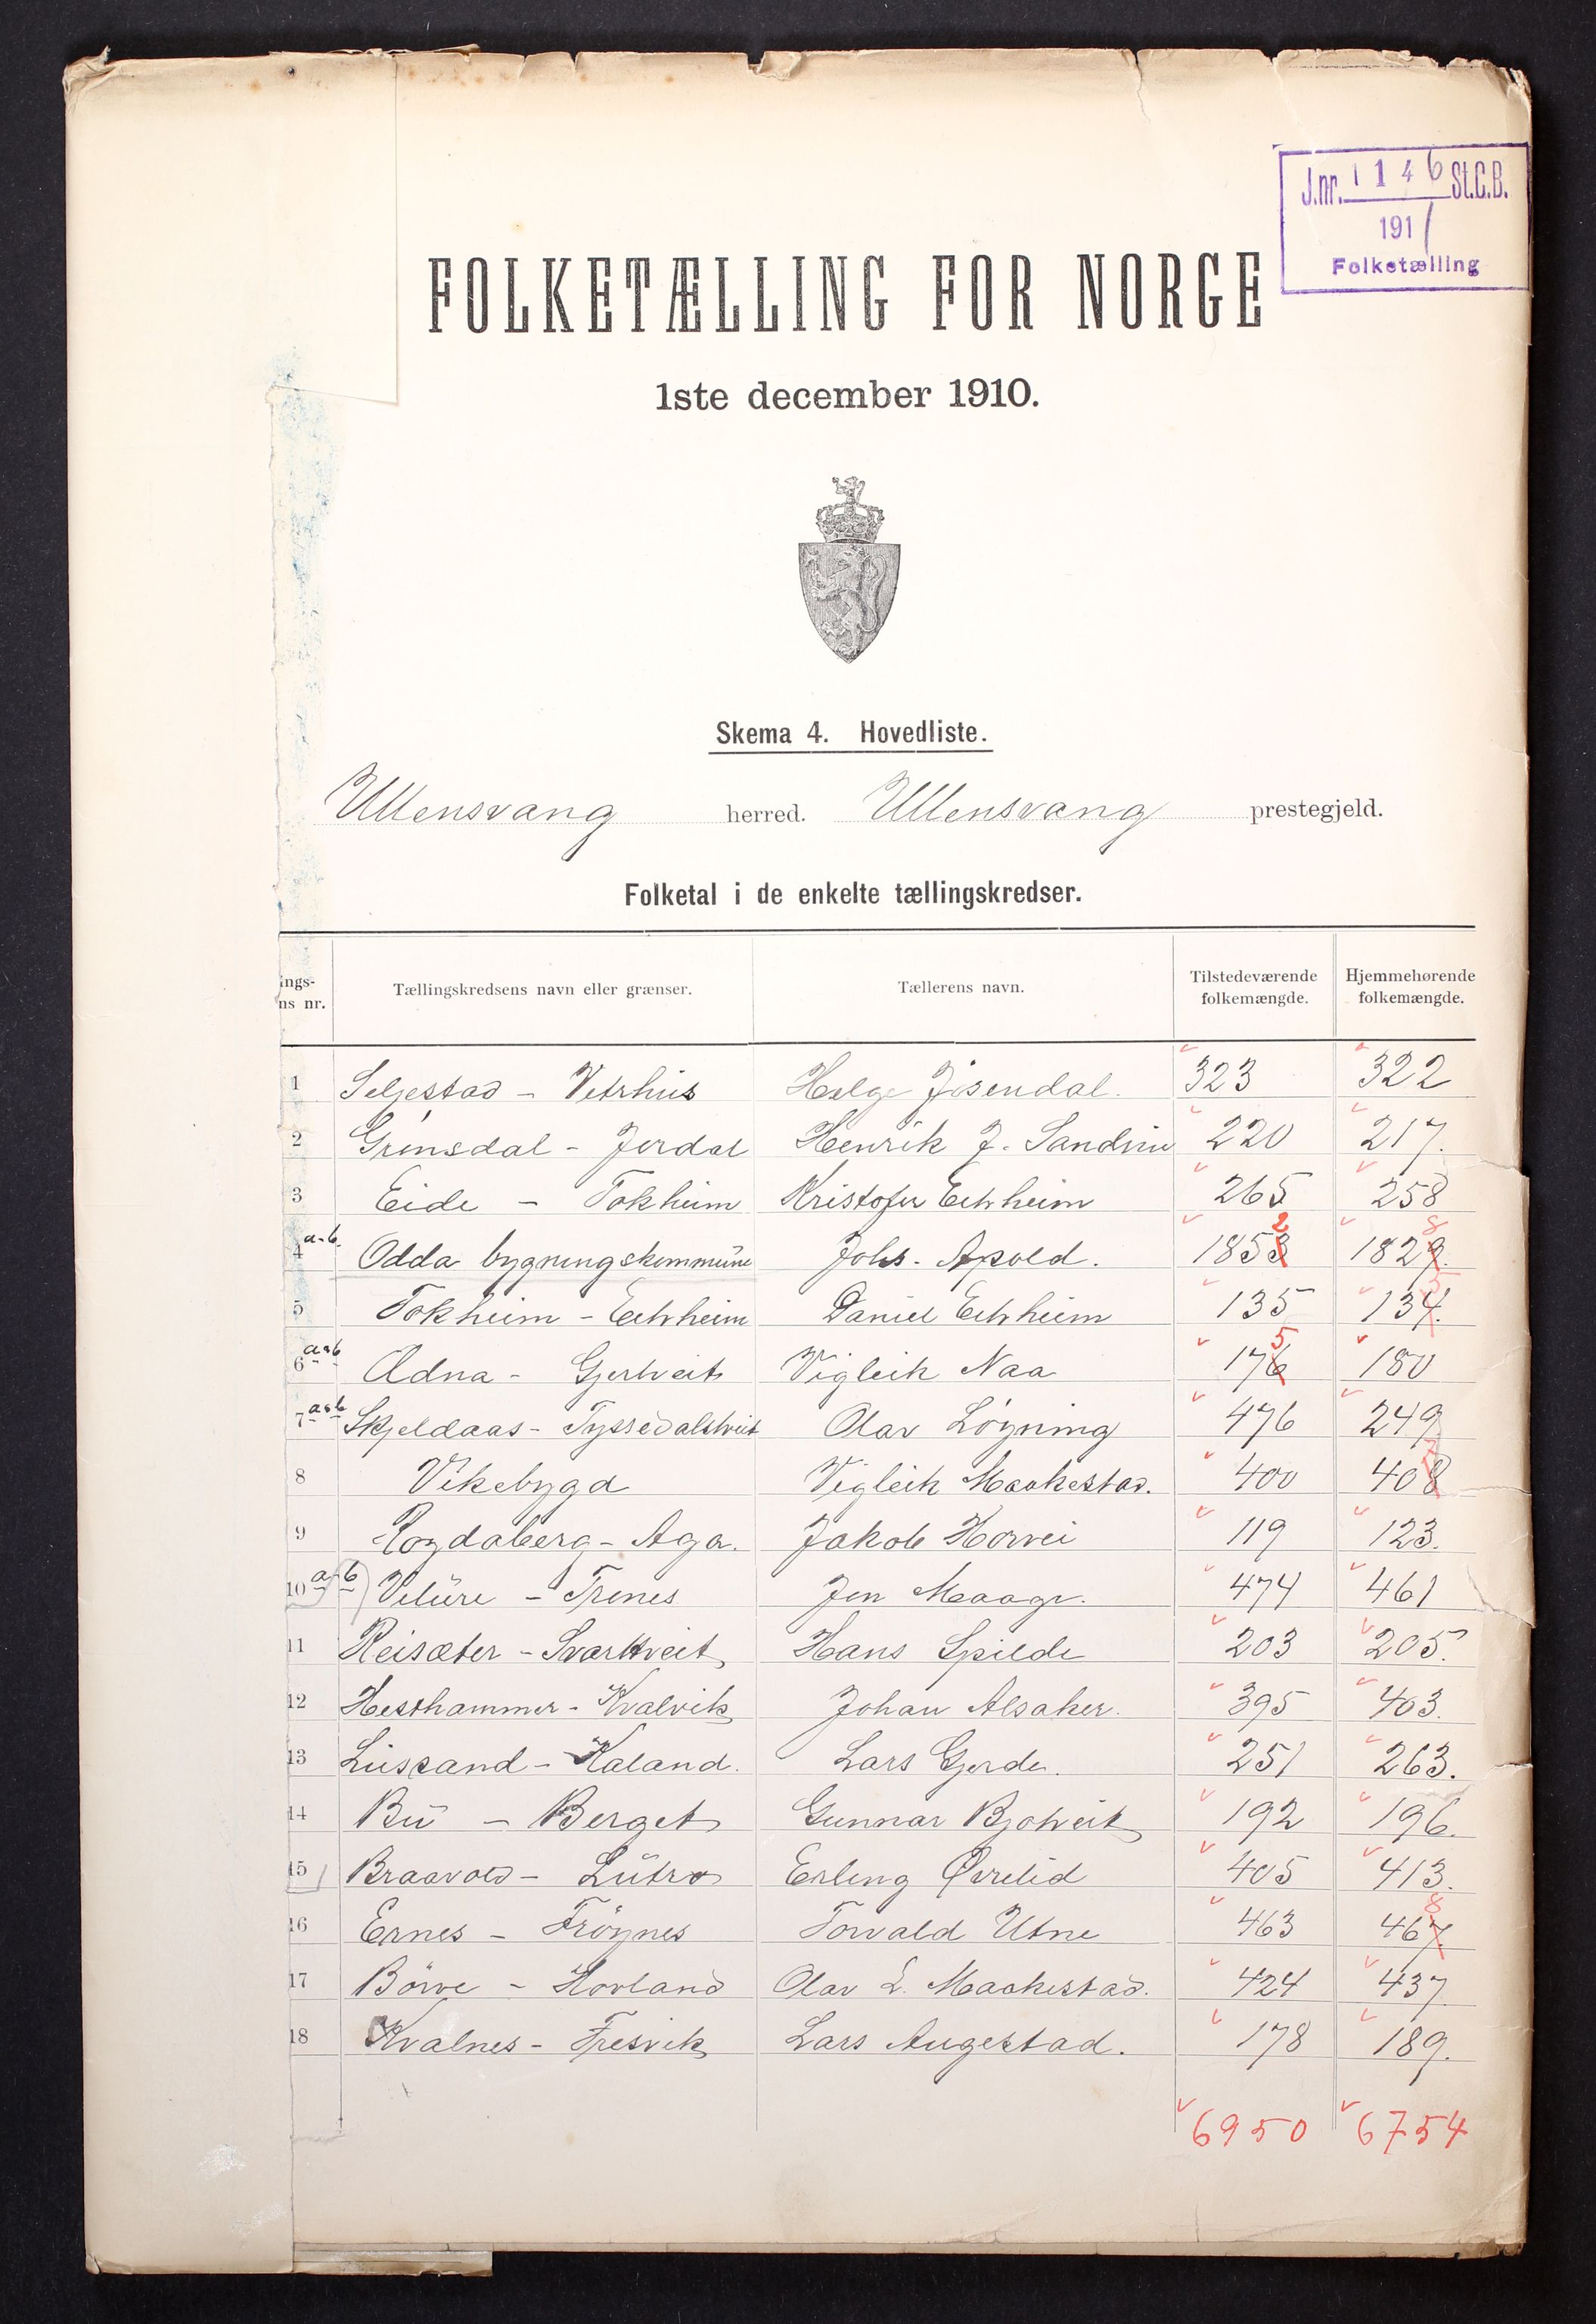 J.nr. 1146 St.C.B.
1911
Folketælling
FOLKETÆLLING FOR NORGE
1ste december 1910.
Skema 4. Hovedliste.
Ullensvang herred. Ullensvang prestegjeld.
Folketal i de enkelte tællingskredser.
ings- ns nr. Tællingskredsens navn eller grænser. Tællerens navn. Tilstedeværende folkemængde. Hjemmehørende folkemængde.
1 Seljestad - Vetrhus Helge Jösendal. 323 322
2 Grönsdal - Jordal Henrik J. Sandvin 220 217.
3 Eide - Tokheim Kristofer Eitrheim 265 258
4 a-b. Odda bygningskommune Johs. Apold. 1853 2 1829. 8
5 Tokheim - Eitrheim Daniel Eitrheim 135 134. 5
6 a-b Ædna - Gjertveit Vigleik Naa 176 5 180
7 a-b Skjeldaas - Tyssedalstveit Olav Löyning 476 249
8 Vikebygd Vigleik Maakestad. 400 408 7
9 Rogdaberg - Aga. Jakob Horvei 119 123.
10 a-b Velüre - Trones Jon Maage. 474 461
11 Reisæter - Svartveit Hans Spilde 203 205.
12 Hesthammer - Kvalvik Johan Alsaker. 395 403.
13 Lüssand - Kaland. Lars Gjerde. 251 263.
14 Bü - Berget Gunnar Bjotveit 192 196.
15 Braavold - Lütro Erling Övrelid 405 413.
16 Ernes - Fröynes Torvald Utne 463 467. 8
17 Börve - Hovland Olav L. Maakestad. 424 437
18 Kvalnes - Fresvik Lars Augestad. 178 189.
6950 6754